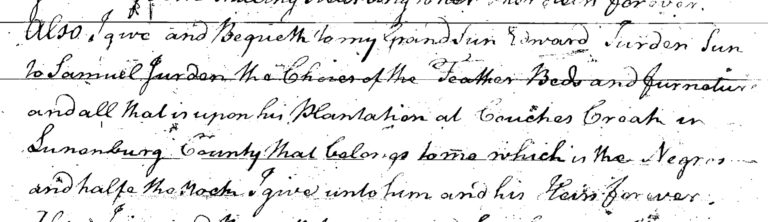 forever.
Also I give and Bequeth to my Grand Sun Edward Jurden Sun
to Samuel Jurden the Choies of the Feather Beds and furnetur
and all that is upon his Plantation at Couches Creak in
Lunenburg County that belongs to me which is the Negros
and halfe the stock I give unto him and his Heirs forever.